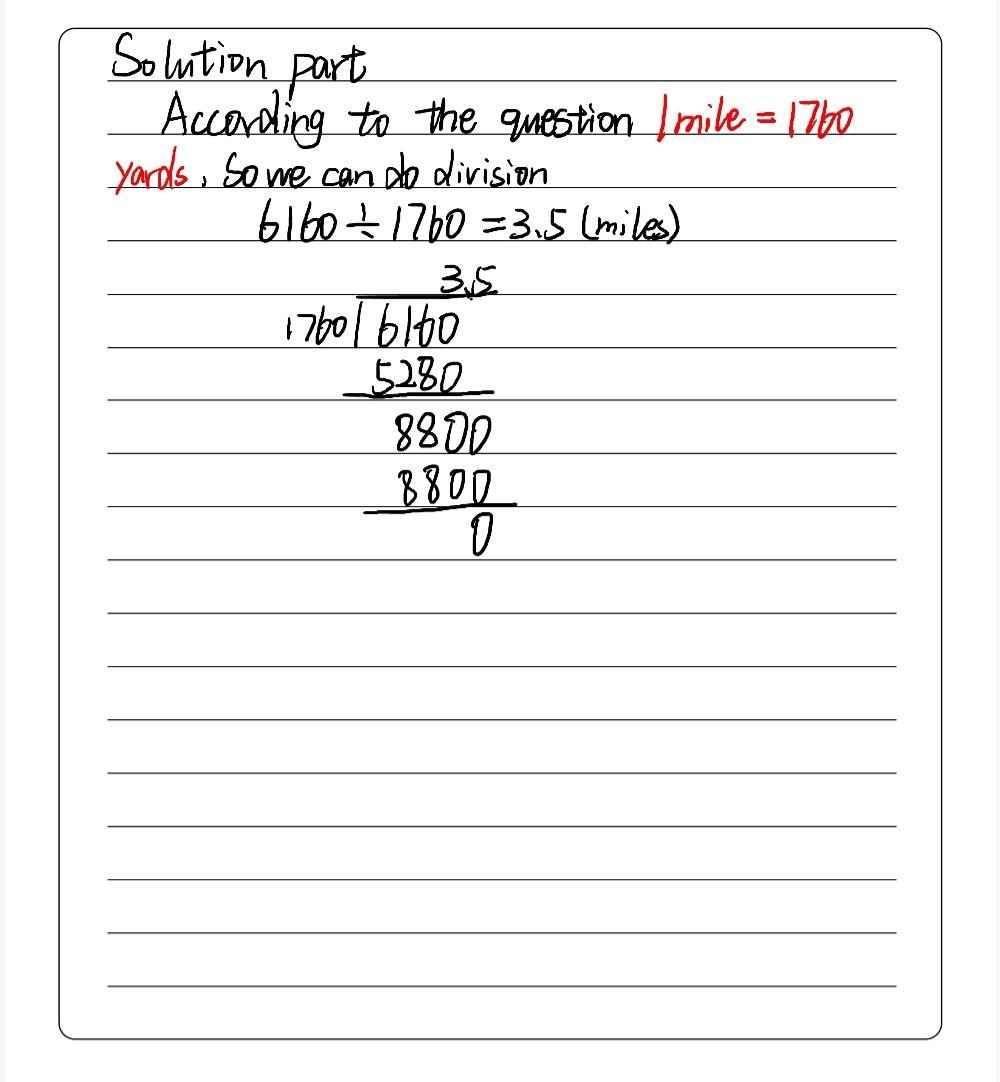 Solution part
According to the question 1 mile = 1760
yards, So we can do division
6160 ÷ 1760 = 3.5 (miles)
3.5
1760 6160
5280
8800
8800
0